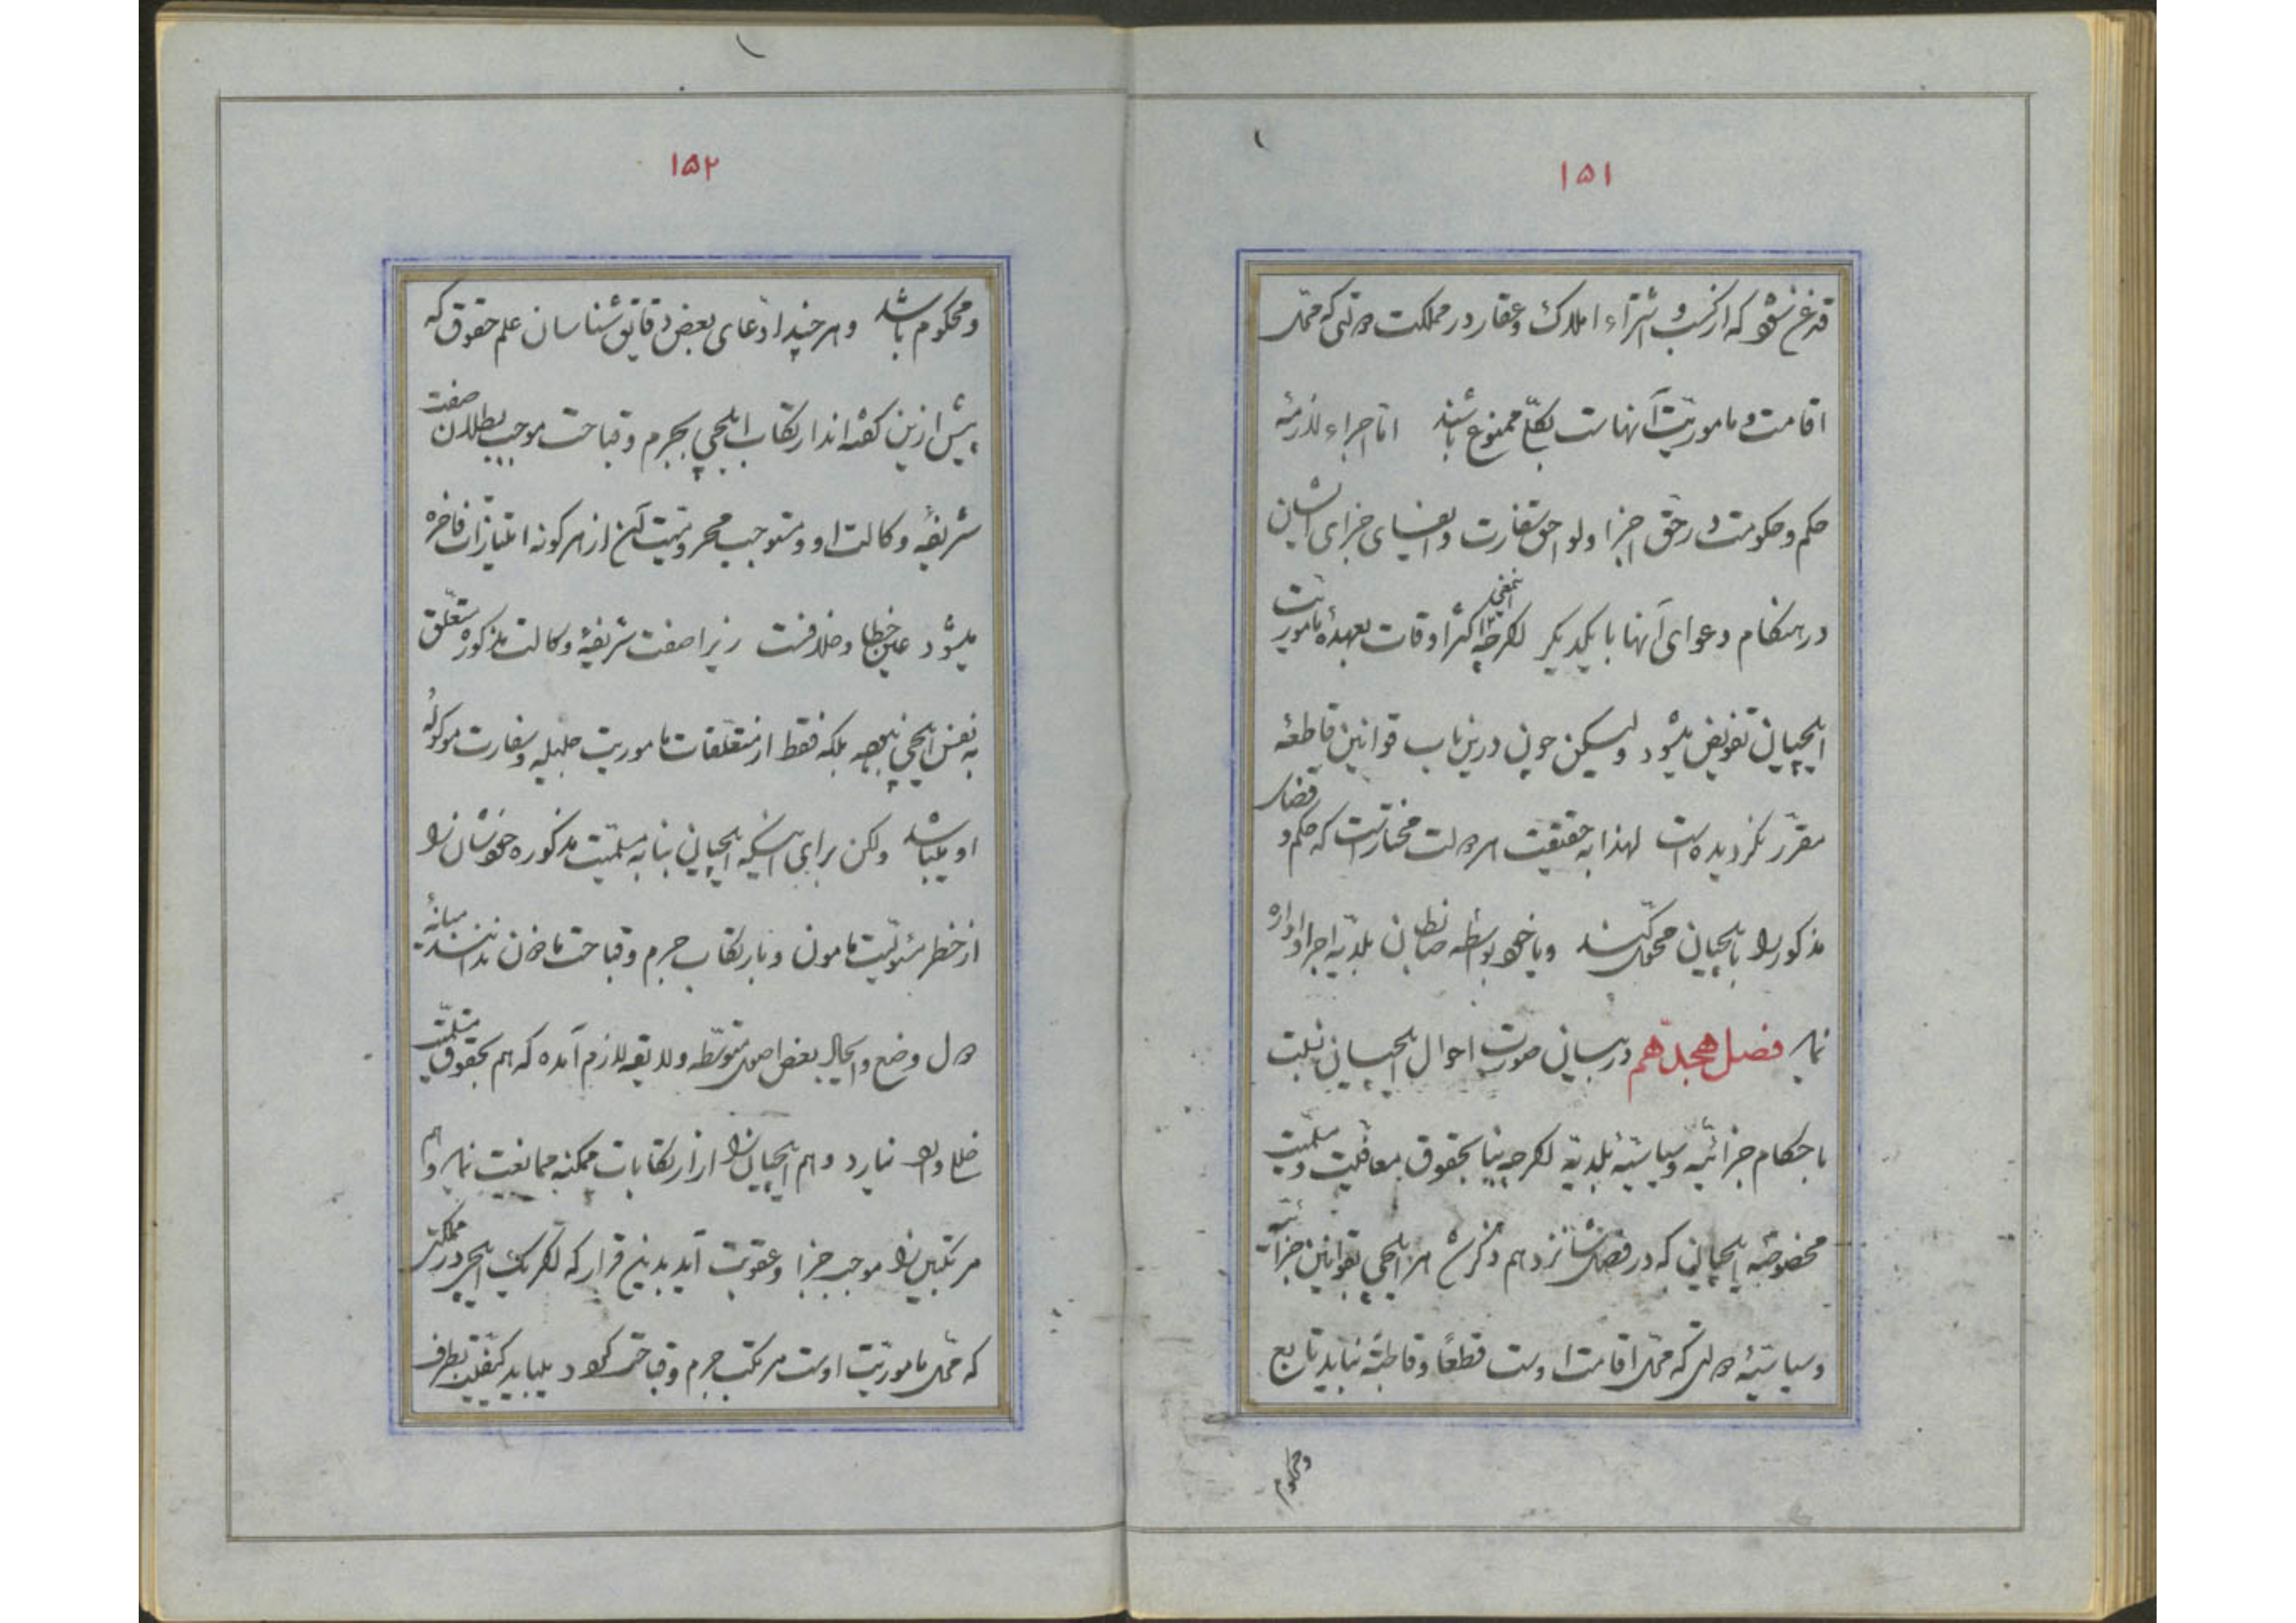 ۱۵۱
قدغن شود که از کسب و اشتراء املاک و عقار در مملکت دولتی که محل
اقامت و ماموریت آنهاست بکلی ممنوع باشند اما اجراء لازمهٔ
حکم و حکومت در حق اجزا و لواحق سفارت و ایفای جزای ایشان
در هنگام دعوای آنها با یکدیگر اگرچه اکثر اوقات بعهدهٔ ماموریت
ایلچیان تفویض میشود ولیکن چون درین باب قوانین قاطعهٔ
مقرر نگردیده است لهذا به حقیقت هر دولت مختار است که حکم و قضای
مذکور را بایلچیان محول کند و یا خود بواسطه ضابطان بلدیه اجرا و اداره
نماید فصل هجدهم در بیان صورت احوال ایلچیان نسبت
باحکام جزائیه و سیاسیهٔ بلدیه اگرچه بنا بحقوق معافیت و سلمیت
مخصوصهٔ ایلچیان که در فصل شانزدهم ذکر شد هر ایلچی بقوانین جزائیه
و سیاسیهٔ دولتی که محل اقامت اوست قطعا و قاطبة نباید تابع
و محکوم
۱۵۲
و محکوم باشد و هر چند ادعای بعض دقایق شناسان علم حقوق که
پیش ازین گفته‌اند ارتکاب ایلچی بجرم و قباحت موجب بطلان صفت
شریفهٔ وکالت او و مستوجب محرومیت آن از هر گونه امتیازات فاخره
میشود عین خطا و خلافست زیرا صفت شریفهٔ وکالت مذکوره متعلق
به نفس ایلچی نبوده بلکه فقط از متعلقات ماموریت جلیله و سفارت موکولهٔ
او میباشد ولکن برای اینکه ایلچیان بنا به سلمیت مذکوره خودشان را
از خطر مسئولیت مامون و بارتکاب جرم و قباحت ماذون ندانند میانهٔ
دول وضع و ایجاد بعض اصول متوسطه و لایقه لازم آمده که هم بحقوق سلمیت
خلل وارد نیارد و هم ایلچیان را از ارتکابات ممکنه ممانعت نماید و هم
مرتکبین را موجب جزا و عقوبت آید بدین قرار که اگر یک ایلچی در مملکتی
که محل ماموریت اوست مرتکب جرم و قباحتی گردد میباید کیفیت بطرف